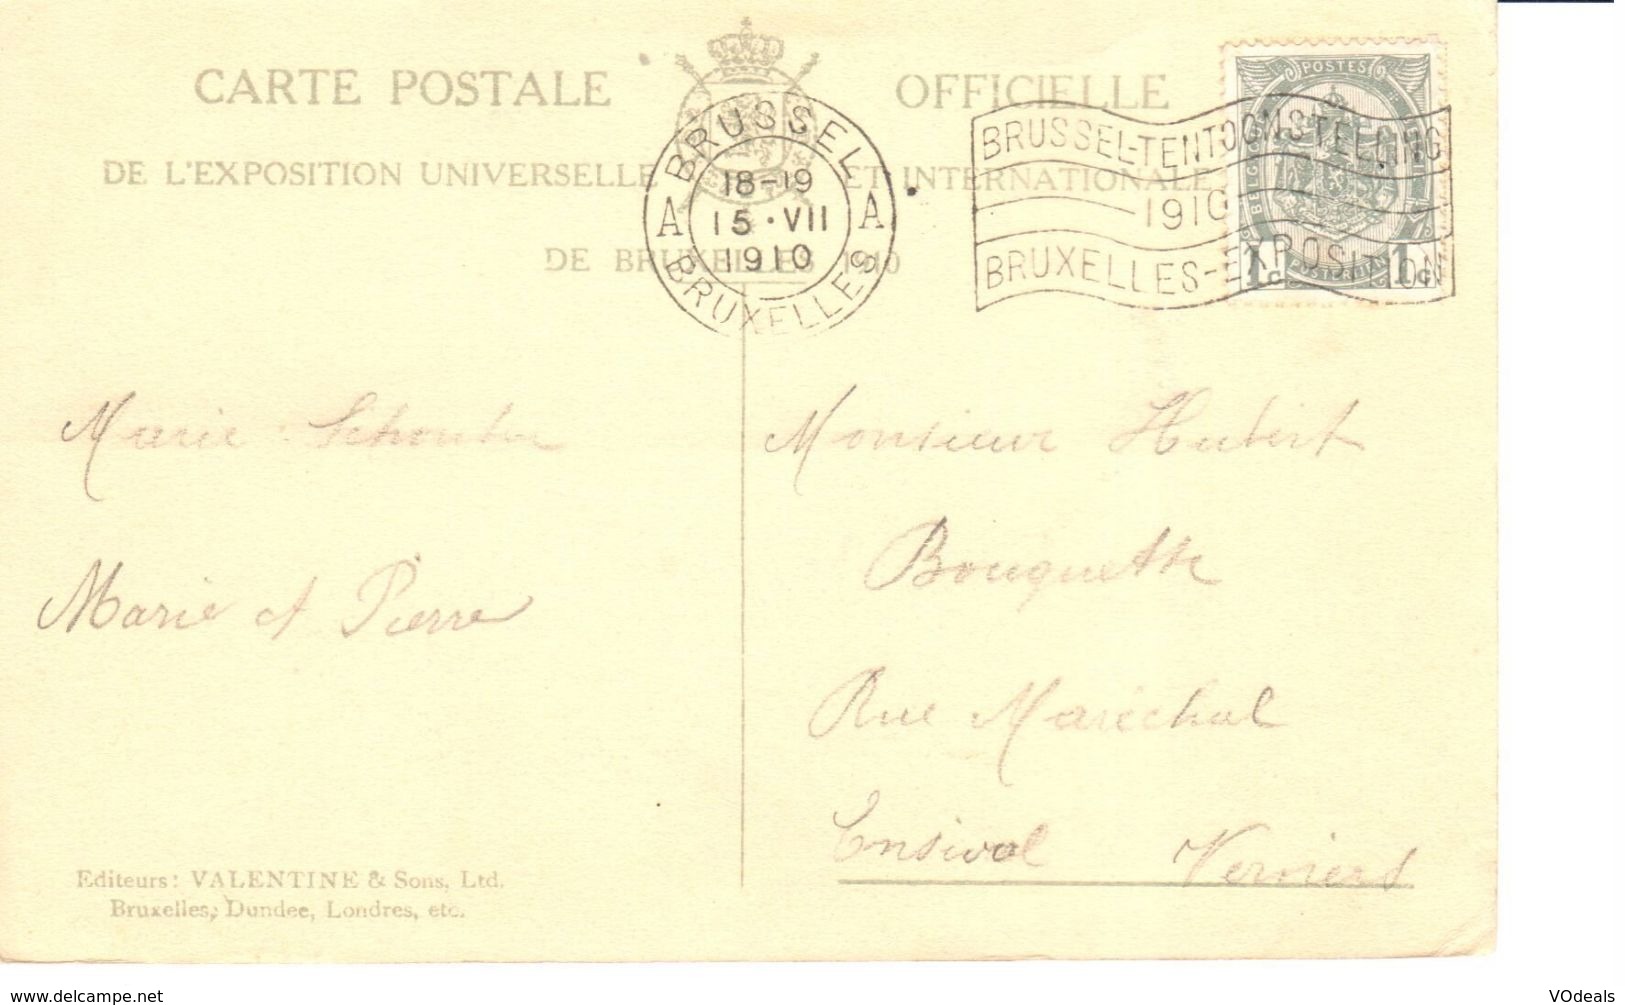 CARTE POSTALE OFFICIELLE
DE L'EXPOSITION UNIVERSELLE ET INTERNATIONALE
DE BRUXELLES 1910
BRUSSEL
A 18-19 A
15·VII
1910
BRUXELLES
BRUSSEL-TENTOONSTELLING
1910
BRUXELLES-EXPOSITION
POSTES
1c 1c
Marie
Marie et Pierre
Monsieur Hubert
Bouquette
Rue Maréchal
Ensival Verviers
Editeurs: VALENTINE & Sons, Ltd.
Bruxelles, Dundee, Londres, etc.
www.delcampe.net
VOdeals